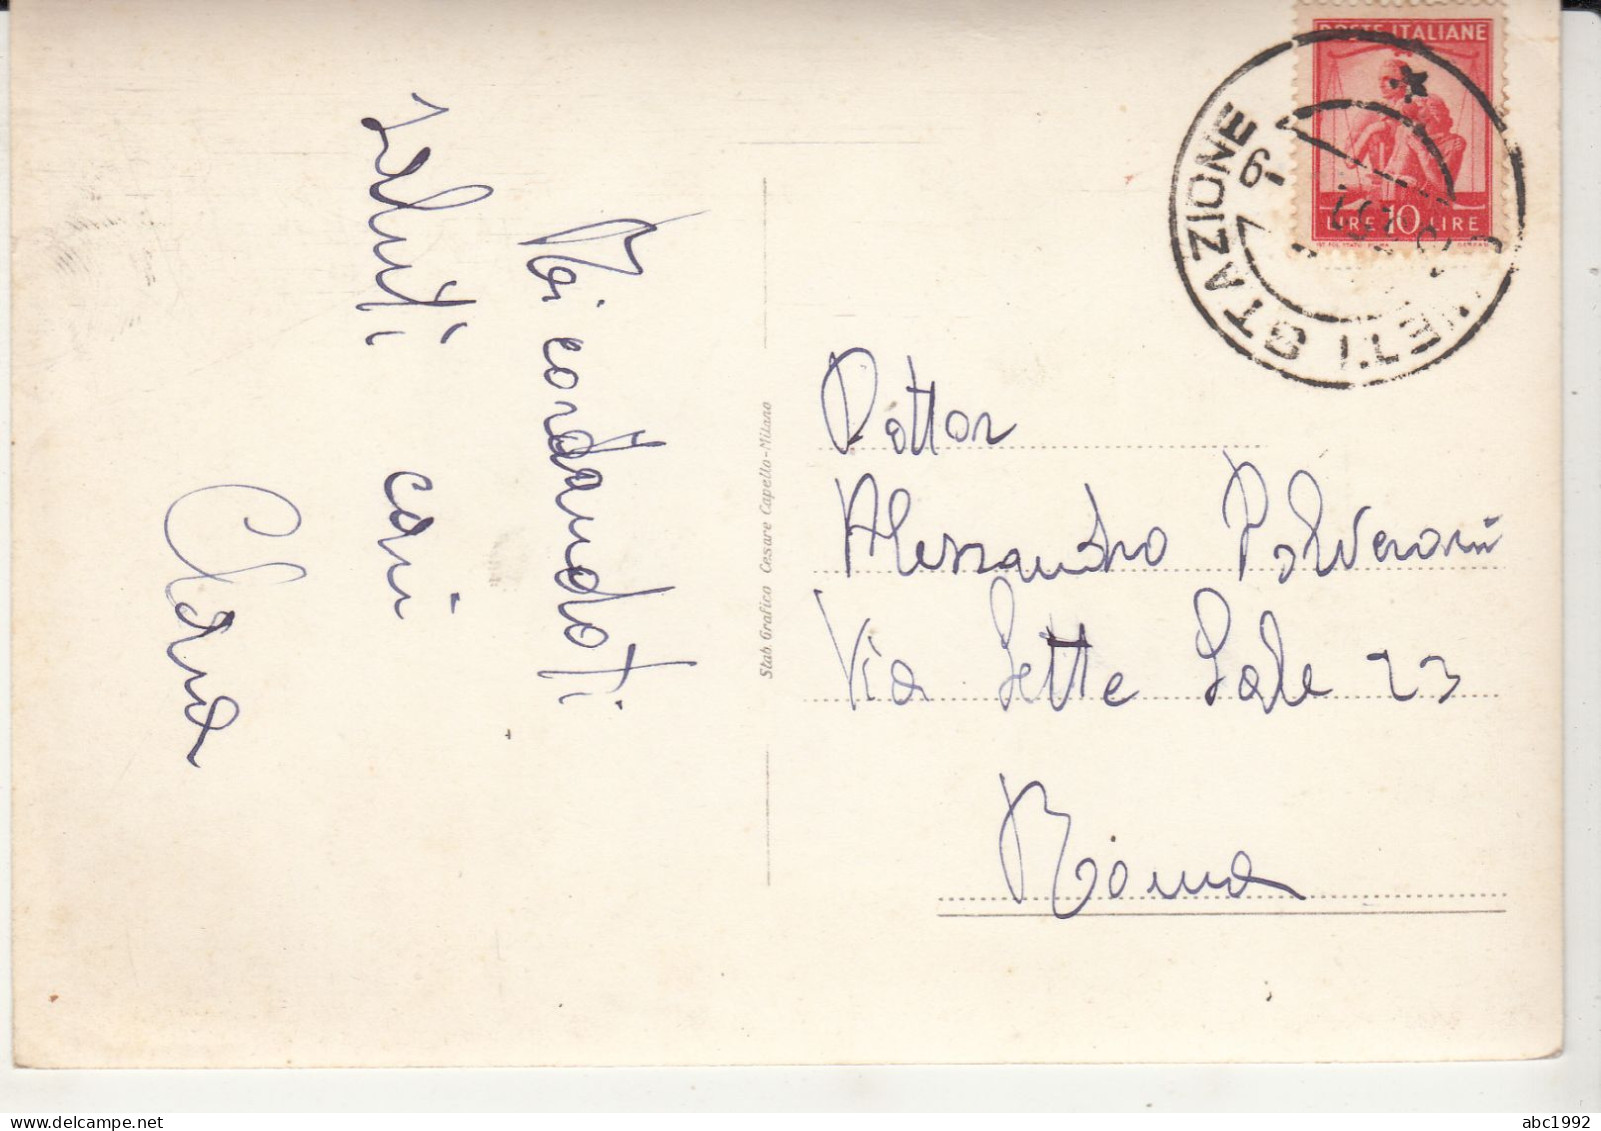 Noi ricordandoti
saluti cari
Stab. Grafico Cesare Capello-Milano
POSTE ITALIANE
LIRE 10 LIRE
STAZIONE
Dottor
Alessandro Polverini
Via Sette Sale 23
Roma
abc1992
delcampe.net